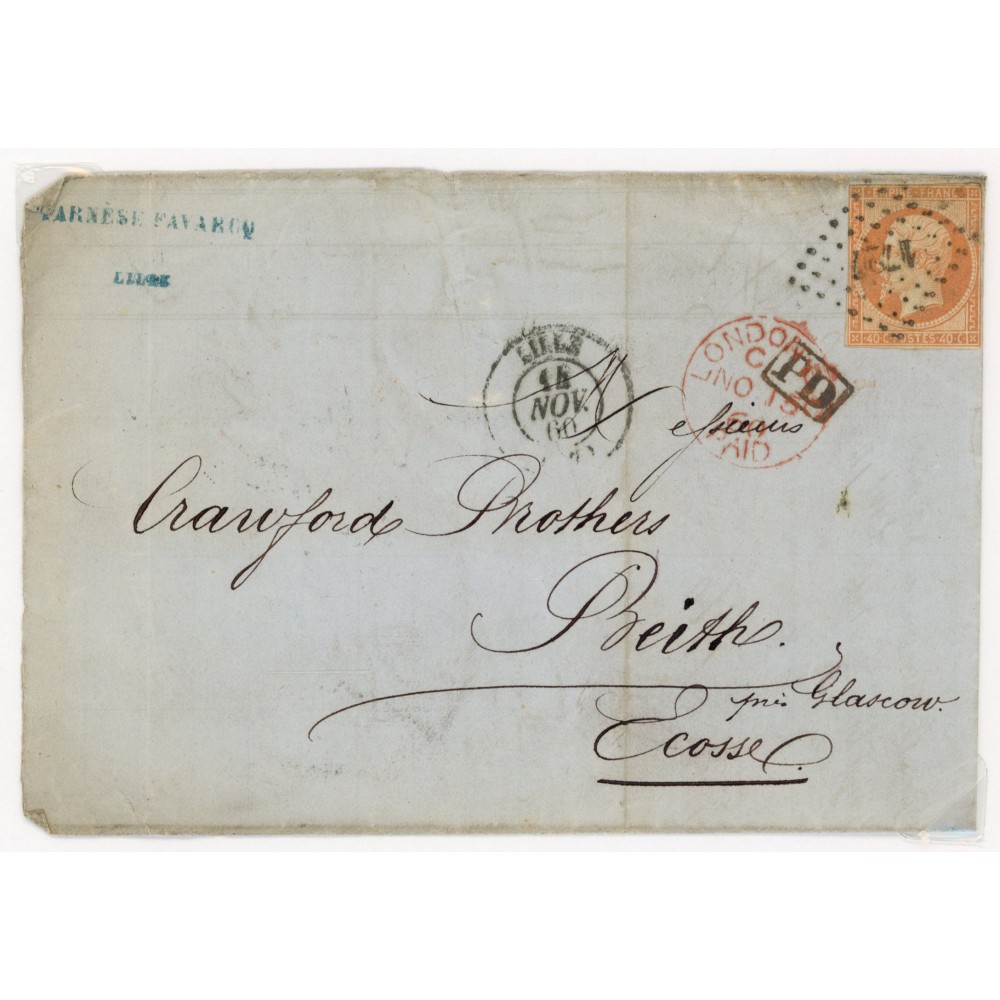 FARNÈSE FAVARCQ
LILLE
EMPIRE FRANC
40 C POSTES 40 C
LILLE
15
NOV.
60
LONDON
C
NO 15
60
PAID
PD
Messieurs
Crawford Brothers
Beith.
près Glascow.
Ecosse.